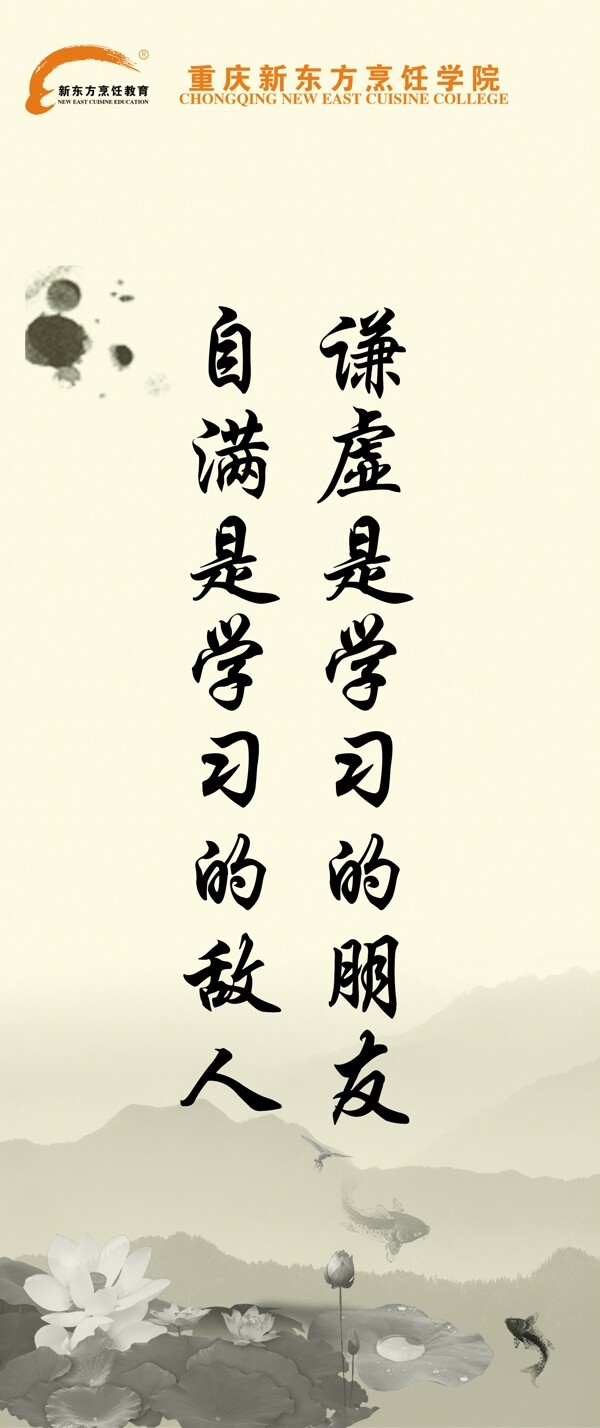 ®
新东方烹饪教育
NEW EAST CUISINE EDUCATION
重庆新东方烹饪学院
CHONGQING NEW EAST CUISINE COLLEGE
谦虚是学习的朋友
自满是学习的敌人